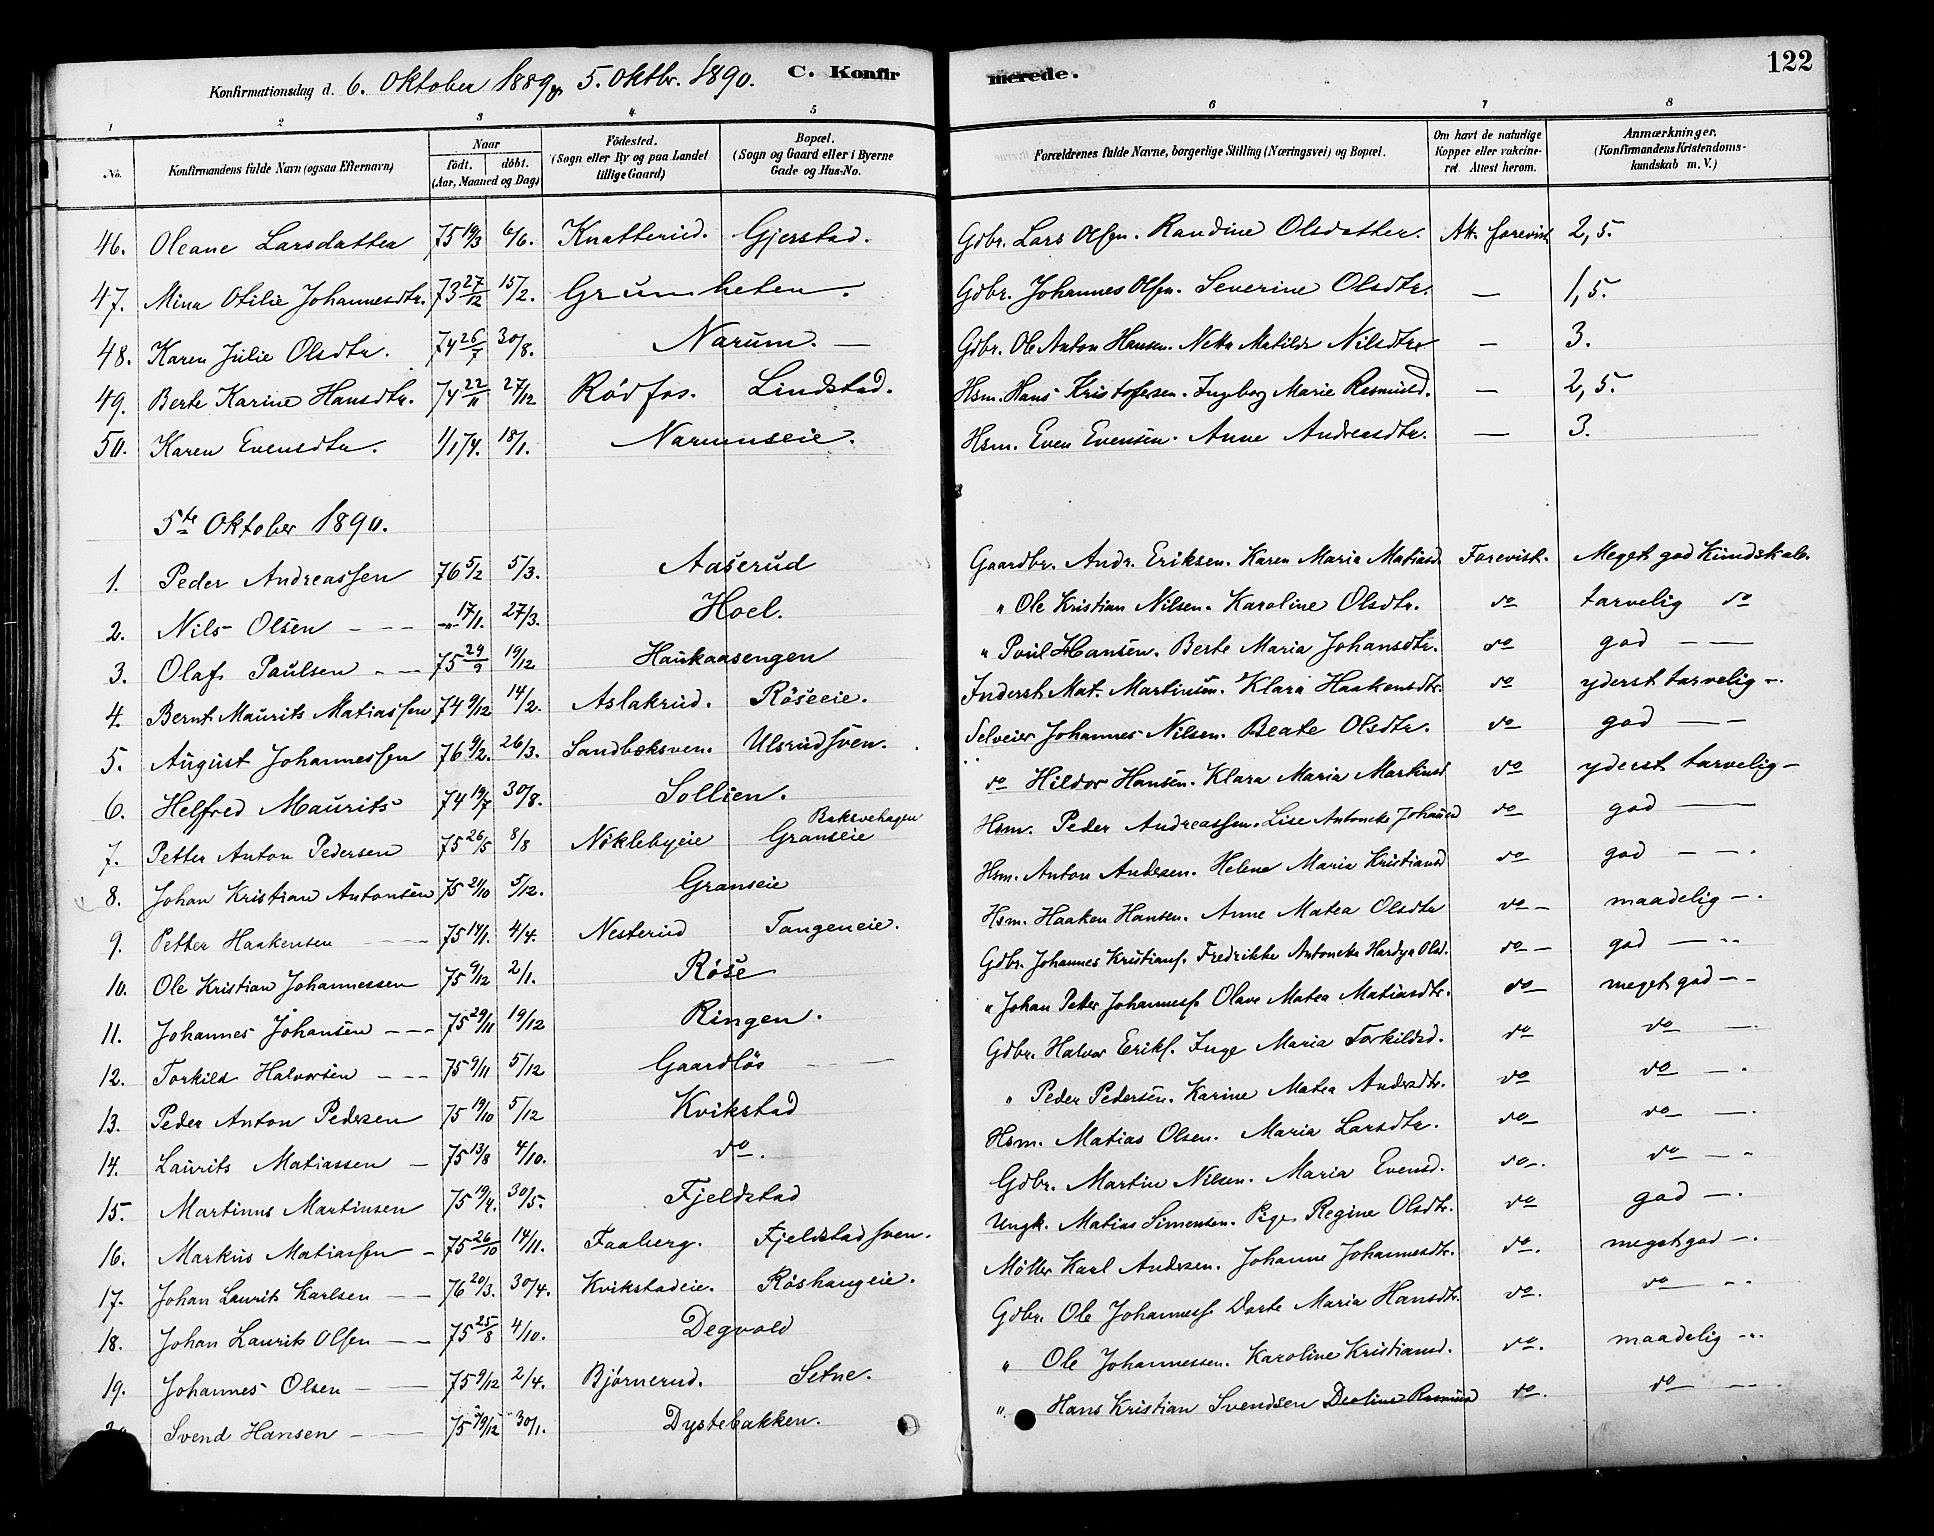 122
Konfirmationsdag d. 6. Oktober 1889 og 5. Oktbr. 1890. C. Konfirmerede.
1 2 3 4 5 6 7 8
No. Konfirmandens fulde Navn (ogsaa Efternavn) Naar födt. döbt. (Aar, Maaned og Dag) Födested. (Sogn eller By og paa Landet tillige Gaard) Bopæl. (Sogn og Gaard eller i Byerne Gade og Hus-No. Forældrenes fulde Navne, borgerlige Stilling (Næringsvei) og Bopæl. Om havt de naturlige Kopper eller vakcineret. Attest herom. Anmærkninger. (Konfirmandens Kristendomskundskab m. V.)
46. Oleane Larsdatter 75 19/3 6/6. Knatterud. Gjerstad. Gdbr. Lars Olsen. Randine Olsdatter. Att. forevist 2,5.
47. Mina Otilie Johannesdtr. 73 27/12 15/2. Grumheten. Gdbr. Johannes Olsen. Severine Olsdtr. — 1,5.
48. Karen Julie Olsdtr. 74 26/7 30/8. Narum. — Gdbr. Ole Anton Hansen. Netta Matilde Nilsdtr — 3.
49. Berte Karine Hansdtr. 74 22/11 27/12 Rödfos. Lindstad. Hsm. Hans Kristofersen. Ingeborg Marie Rasmusd. — 2,5.
50. Karen Evensdtr. 1/1 74. 18/1. Narumseie. Hsm. Even Evensen. Anne Andreasdtr. — 3.
5te Oktober 1890.
1. Peder Andreassen 76 5/2 5/3. Aaserud Gaardbr. Andr. Eriksen. Karen Maria Matiasd. Forevist. Meget god Kundskab.
2. Nils Olsen — — — -"- 17/1. 27/3. Hoel. " Ole Kristian Nilsen. Karoline Olsdtr. do tarvelig do
3. Olaf Paulsen — — 75 29/9 19/12 Haukaasengen " Poul Hansen. Berte Maria Johansdtr. do god — —
4. Bernt Maurits Matiassen 74 9/12 14/2. Aslakrud. Röseeie. Inderst Mat. Martinsen. Klara Haakensdtr. do yderst tarvelig —
5. August Johannessen 76 9/2. 26/3. Sandbæksven. Ulsrudsven. Selveier Johannes Nilsen. Beate Olsdtr. do god — —
6. Helfred Maurits 74 19/7 30/8. Sollien. do Hildor Hansen. Klara Maria Martinsd do yderst tarvelig —
7. Petter Anton Pedersen 75 26/5 8/8 Nöklebyeie Bakvehagen Granseie Hsm. Peder Andreassen. Lise Antonette Johansd do god — —
8. Johan Kristian Antonsen 75 21/10 5/12. Granseie Hsm. Anton Andersen. Helene Maria Kristiansd do god — —.
9. Petter Haakensen — — — 75 14/1. 4/4. Nesterud Tangeneie. Hsm. Haaken Hansen. Anne Matea Olsdtr do — maadelig —.
10. Ole Kristian Johannessen 75 9/12 2/1. Röse Gdbr. Johannes Kristians. Fredrikke Antonette Olsd. do — god — "
11. Johannes Johansen — — — 75 29/11 19/12 Ringen. " Johan Peter Johanness. Olave Matea Matiasdtr. do meget god — —
12. Torkild Halvorsen — — — 75 9/11 5/12 Gaardlös Gdbr. Halvor Eriks. Inge Maria Torkildsd. do do —.
13. Peder Anton Pedersen 75 19/10 5/12 Kvikstad " Peder Pedersen. Karine Matea Andersdtr. do do —.
14. Laurits Matiassen — 75 13/8 4/10. do. Hsm. Matias Olsen. Maria Larsdtr. do do —.
15. Martinus Martinsen 75 19/4. 30/5. Fjeldstad Gdbr. Martin Nilsen. Maria Evensd. do. do — "
16. Markus Matiassen — 75 26/10 14/11. Faaberg. Fjeldstadsven. Ungk. Matias Simensen. Pige Regine Olsdtr. do god —.
17. Johan Laurits Karlsen — — 76 20/3. 30/4. Kvikstadeie. Röshaugeie. Møller Karl Andersen. Johanne Johannesdtr. do. meget god —.
18. Johan Laurits Olsen — — 75 25/8 4/10. Degvold Gdbr. Ole Johanness Dorte Maria Hansdtr. do. do — "
19. Johannes Olsen — — 75 9/12 2/4. Bjørnerud. Setne. " Ole Johannessen. Karoline Kristiansd. do. maadelig — "
Svend Hansen — — 75 29/12 30/1. Dystebakken. " Hans Kristian Svendsen Deoline Rasmusd do. do — —